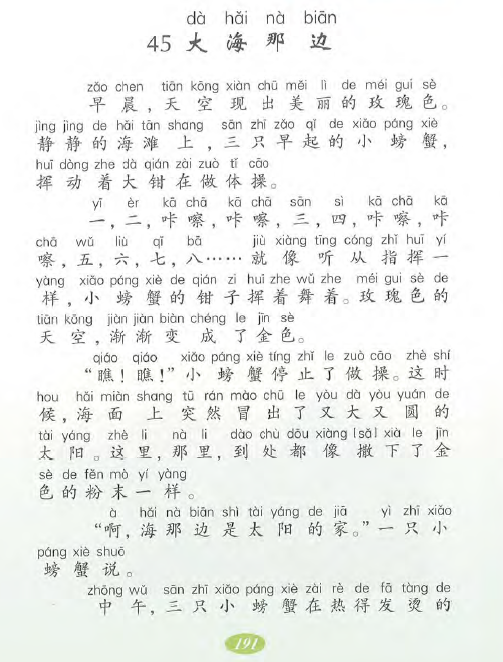 dà hǎi nà biān
45 大海那边
zǎo chen tiān kōng xiàn chū měi lì de méi gui sè
早晨，天空现出美丽的玫瑰色。
jìng jìng de hǎi tān shang sān zhī zǎo qǐ de xiǎo páng xiè
静静的海滩上，三只早起的小螃蟹，
huī dòng zhe dà qián zài zuò tǐ cāo
挥动着大钳在做体操。
yī èr kā chā kā chā sān sì kā chā kā
一，二，咔嚓，咔嚓，三，四，咔嚓，咔
chā wǔ liù qī bā jiù xiàng tīng cóng zhǐ huī yí
嚓，五，六，七，八……就像听从指挥一
yàng xiǎo páng xiè de qián zi huī zhe wǔ zhe méi gui sè de
样，小螃蟹的钳子挥着舞着。玫瑰色的
tiān kōng jiàn jiàn biàn chéng le jīn sè
天空，渐渐变成了金色。
qiáo qiáo xiǎo páng xiè tíng zhǐ le zuò cāo zhè shí
“瞧！瞧！”小螃蟹停止了做操。这时
hou hǎi miàn shang tū rán mào chū le yòu dà yòu yuán de
候，海面上突然冒出了又大又圆的
tài yáng zhè li nà li dào chù dōu xiàng [sǎ] xià le jīn
太阳。这里，那里，到处都像撒下了金
sè de fěn mò yí yàng
色的粉末一样。
à hǎi nà biān shì tài yáng de jiā yì zhī xiǎo
“啊，海那边是太阳的家。”一只小
páng xiè shuō
螃蟹说。
zhōng wǔ sān zhī xiǎo páng xiè zài rè de fā tàng de
中午，三只小螃蟹在热得发烫的
191